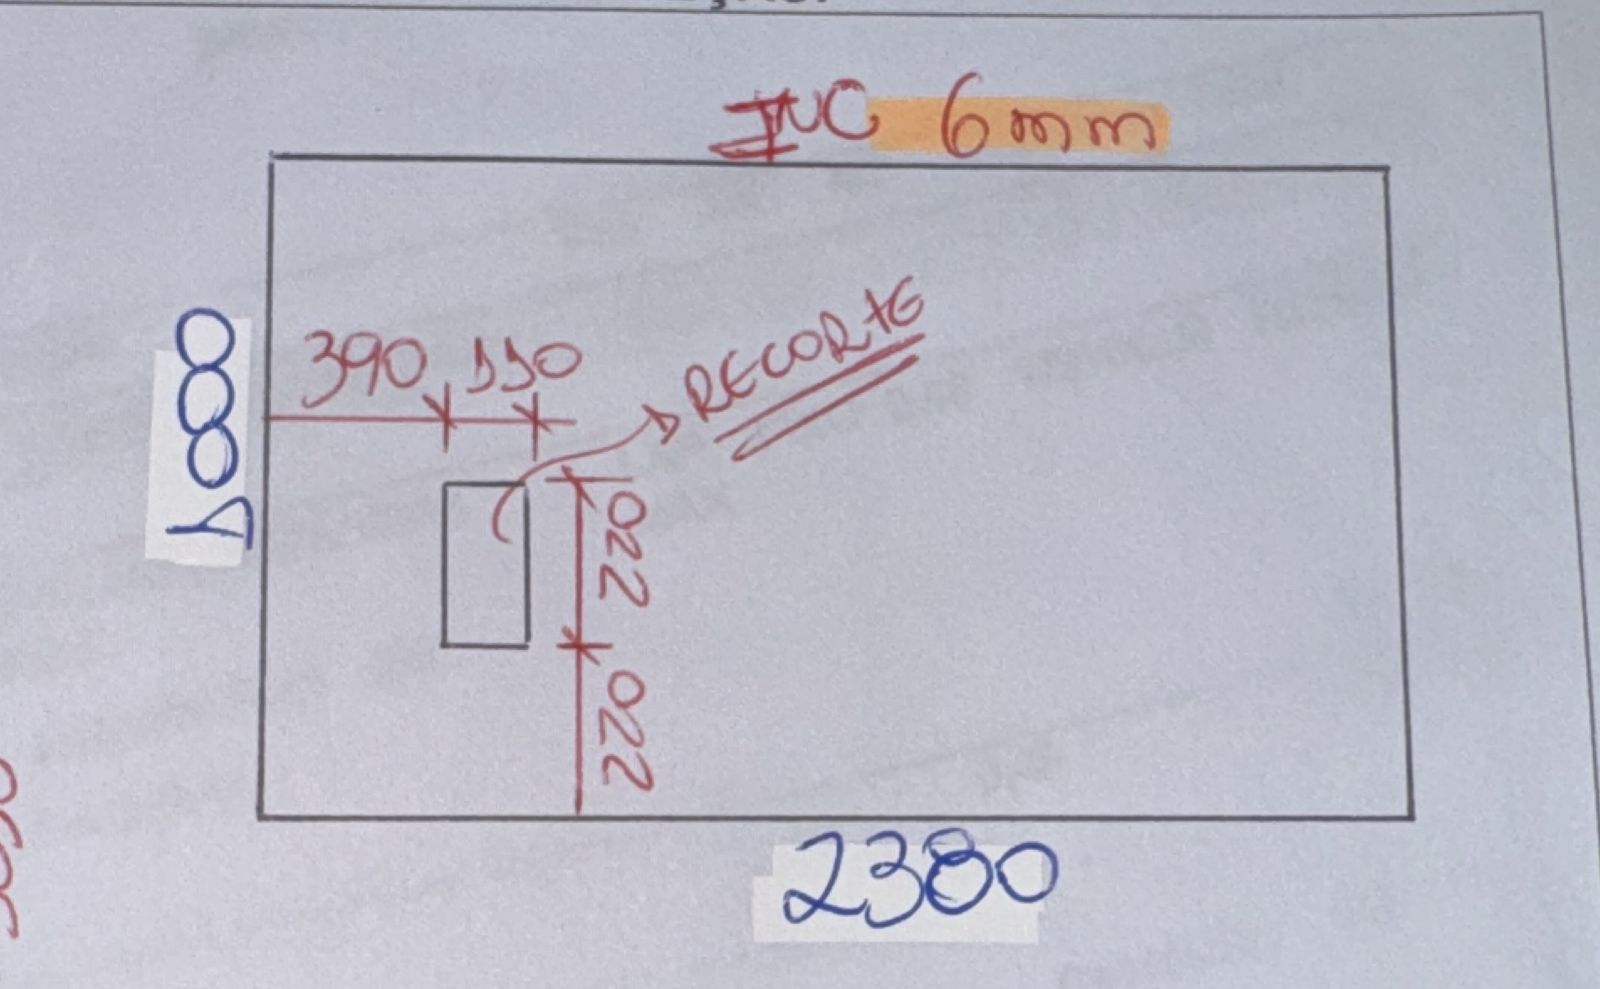 INC 6mm
1000
390 110
RECORTE
220
220
2380